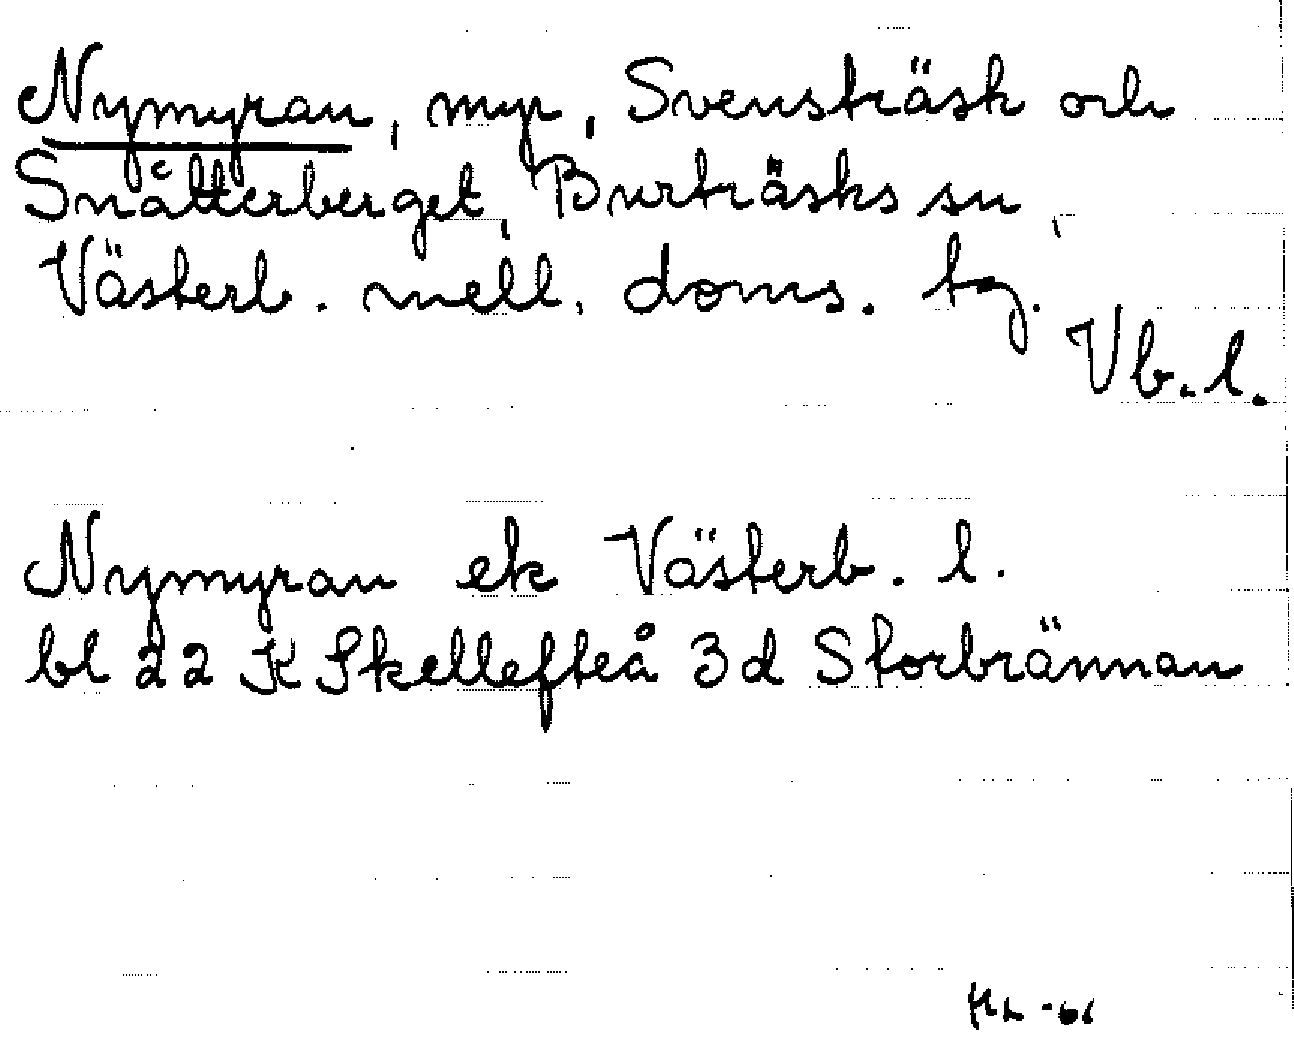 Nymyran, myr, Svensträsk och
Snålterberget, Burträsks sn,
Västerb. mell. doms. tg.
Vb. l.
Nymyran ek Västerb. l.
bl 22 K Skellefteå 3 d Storbrännan